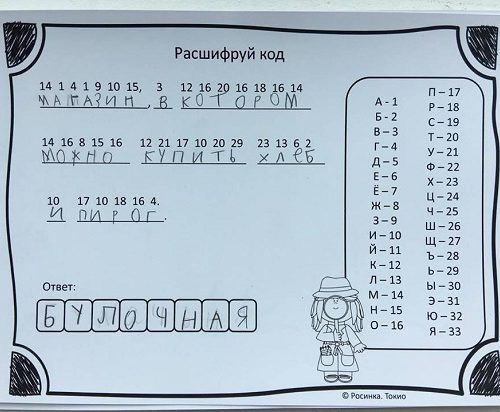 Расшифруй код
14 1 4 1 9 10 15, 3 12 16 20 16 18 16 14
МАГАЗИН, В КОТОРОМ
14 16 8 15 16 12 21 17 10 20 29 23 13 6 2
МОЖНО КУПИТЬ ХЛЕБ
10 17 10 18 16 4.
И ПИРОГ.
Ответ:
БУЛОЧНАЯ
А - 1
Б - 2
В – 3
Г – 4
Д – 5
Е – 6
Ё – 7
Ж – 8
З – 9
И – 10
Й – 11
К – 12
Л – 13
М – 14
Н – 15
О – 16
П – 17
Р – 18
С – 19
Т – 20
У – 21
Ф – 22
Х – 23
Ц – 24
Ч – 25
Ш – 26
Щ – 27
Ъ – 28
Ь – 29
Ы – 30
Э – 31
Ю – 32
Я – 33
© Росинка. Токио